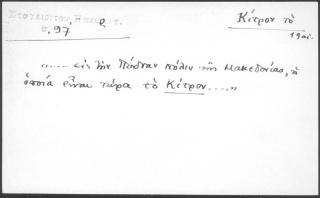 Στογειτου, Ηπειρ. τ. Κίτρον τὸ
σ. 97 19αι.
«..... εἰς τὴν Πύδναν πόλιν τῆς Μακεδονίας, ἡ
ὁποία εἶναι τώρα τὸ Κίτρον....»